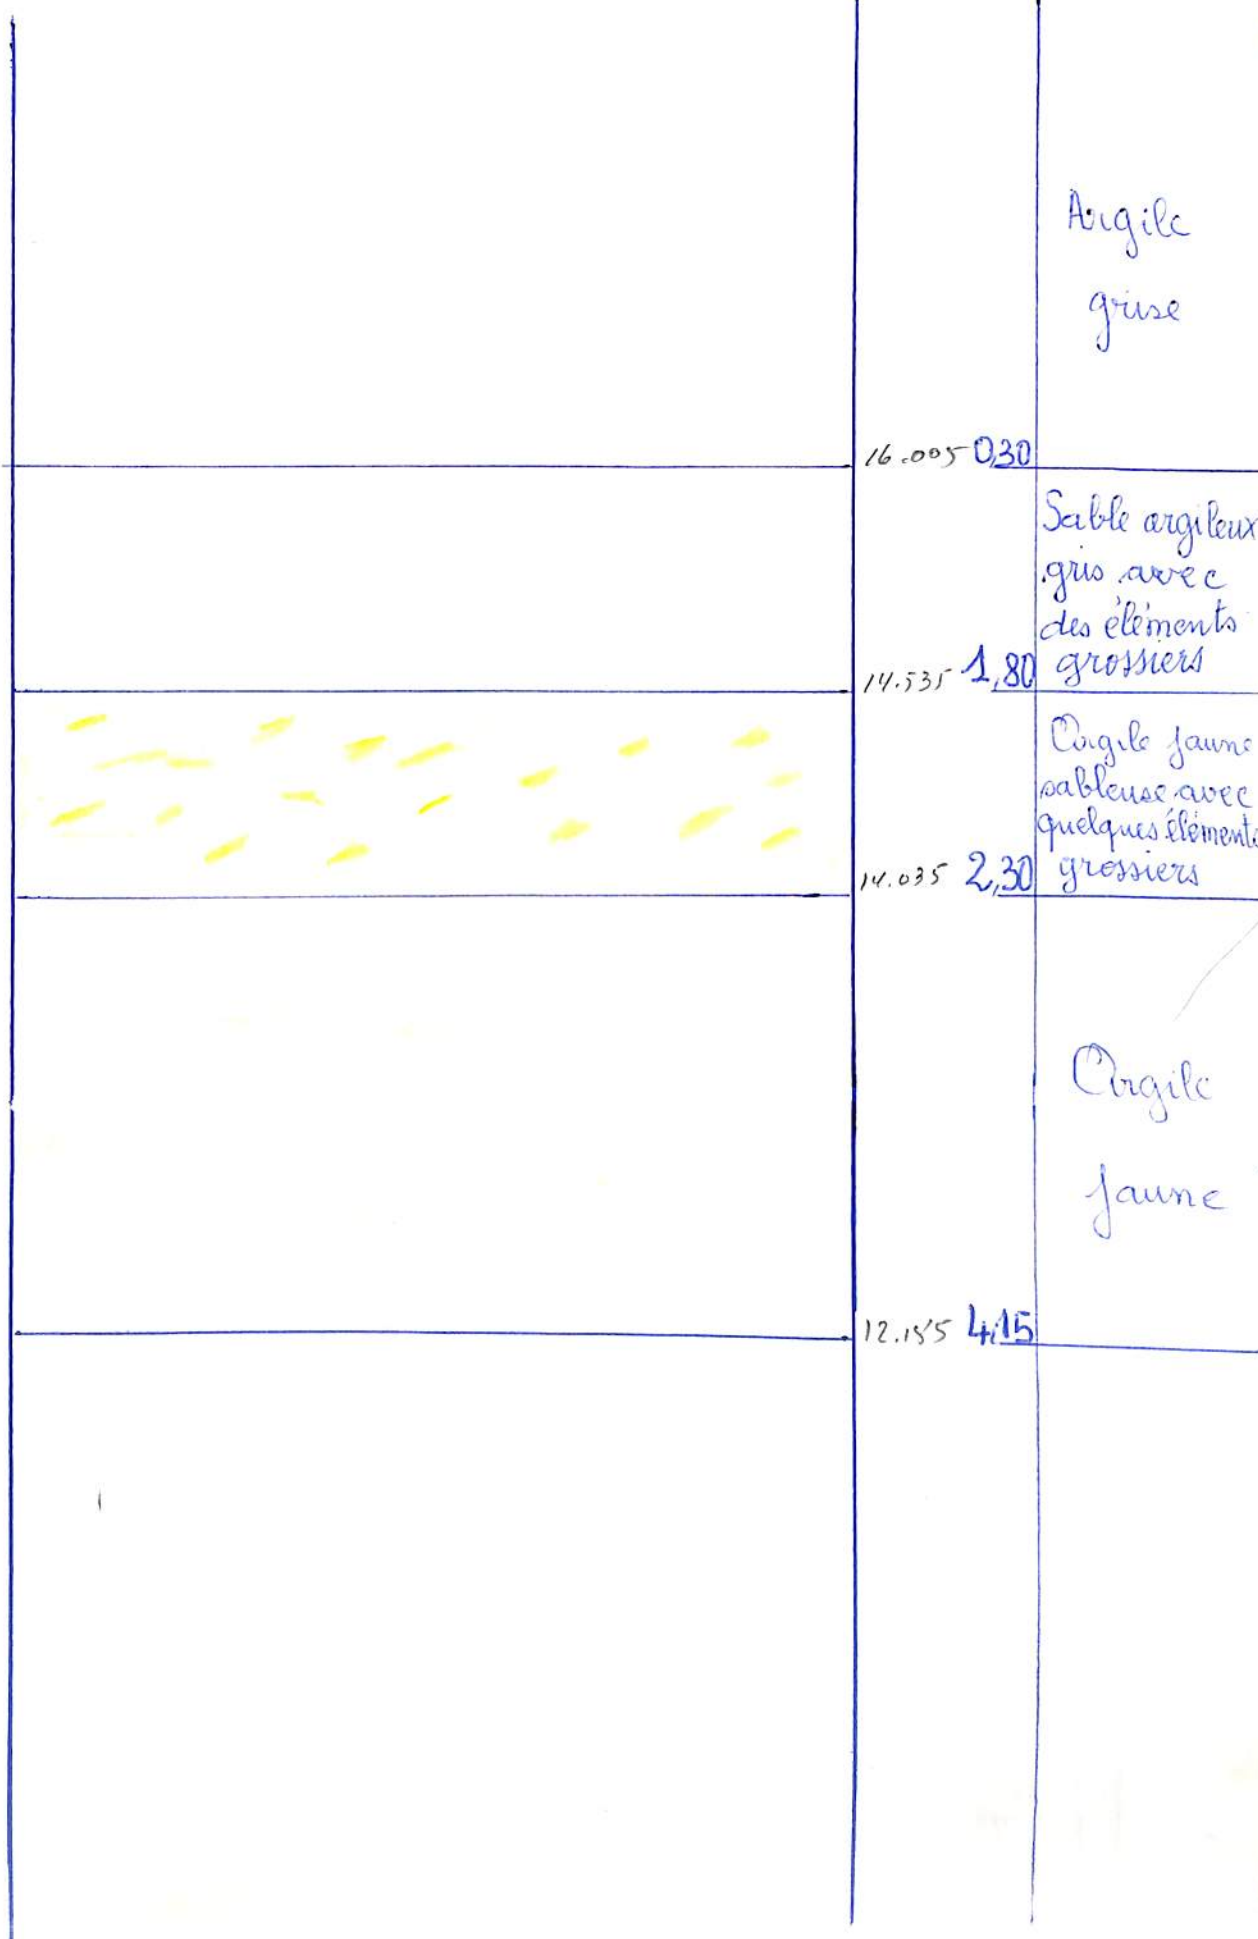 Argile
grise
16.005 0,30
Sable argileux
gris avec
des éléments
grossiers
14.535 1,80
Argile jaune
sableuse avec
quelques éléments
grossiers
14.035 2,30
Argile
jaune
12.185 4,15